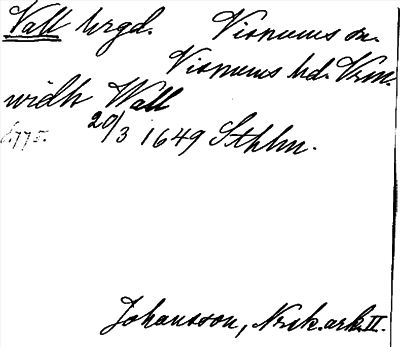 Vall hrgd. Visnums sn.
Visnums hd. Vrml.
widh Wall
20/3 1649 Sthlm.
Johansson, Norsk. ark. II.